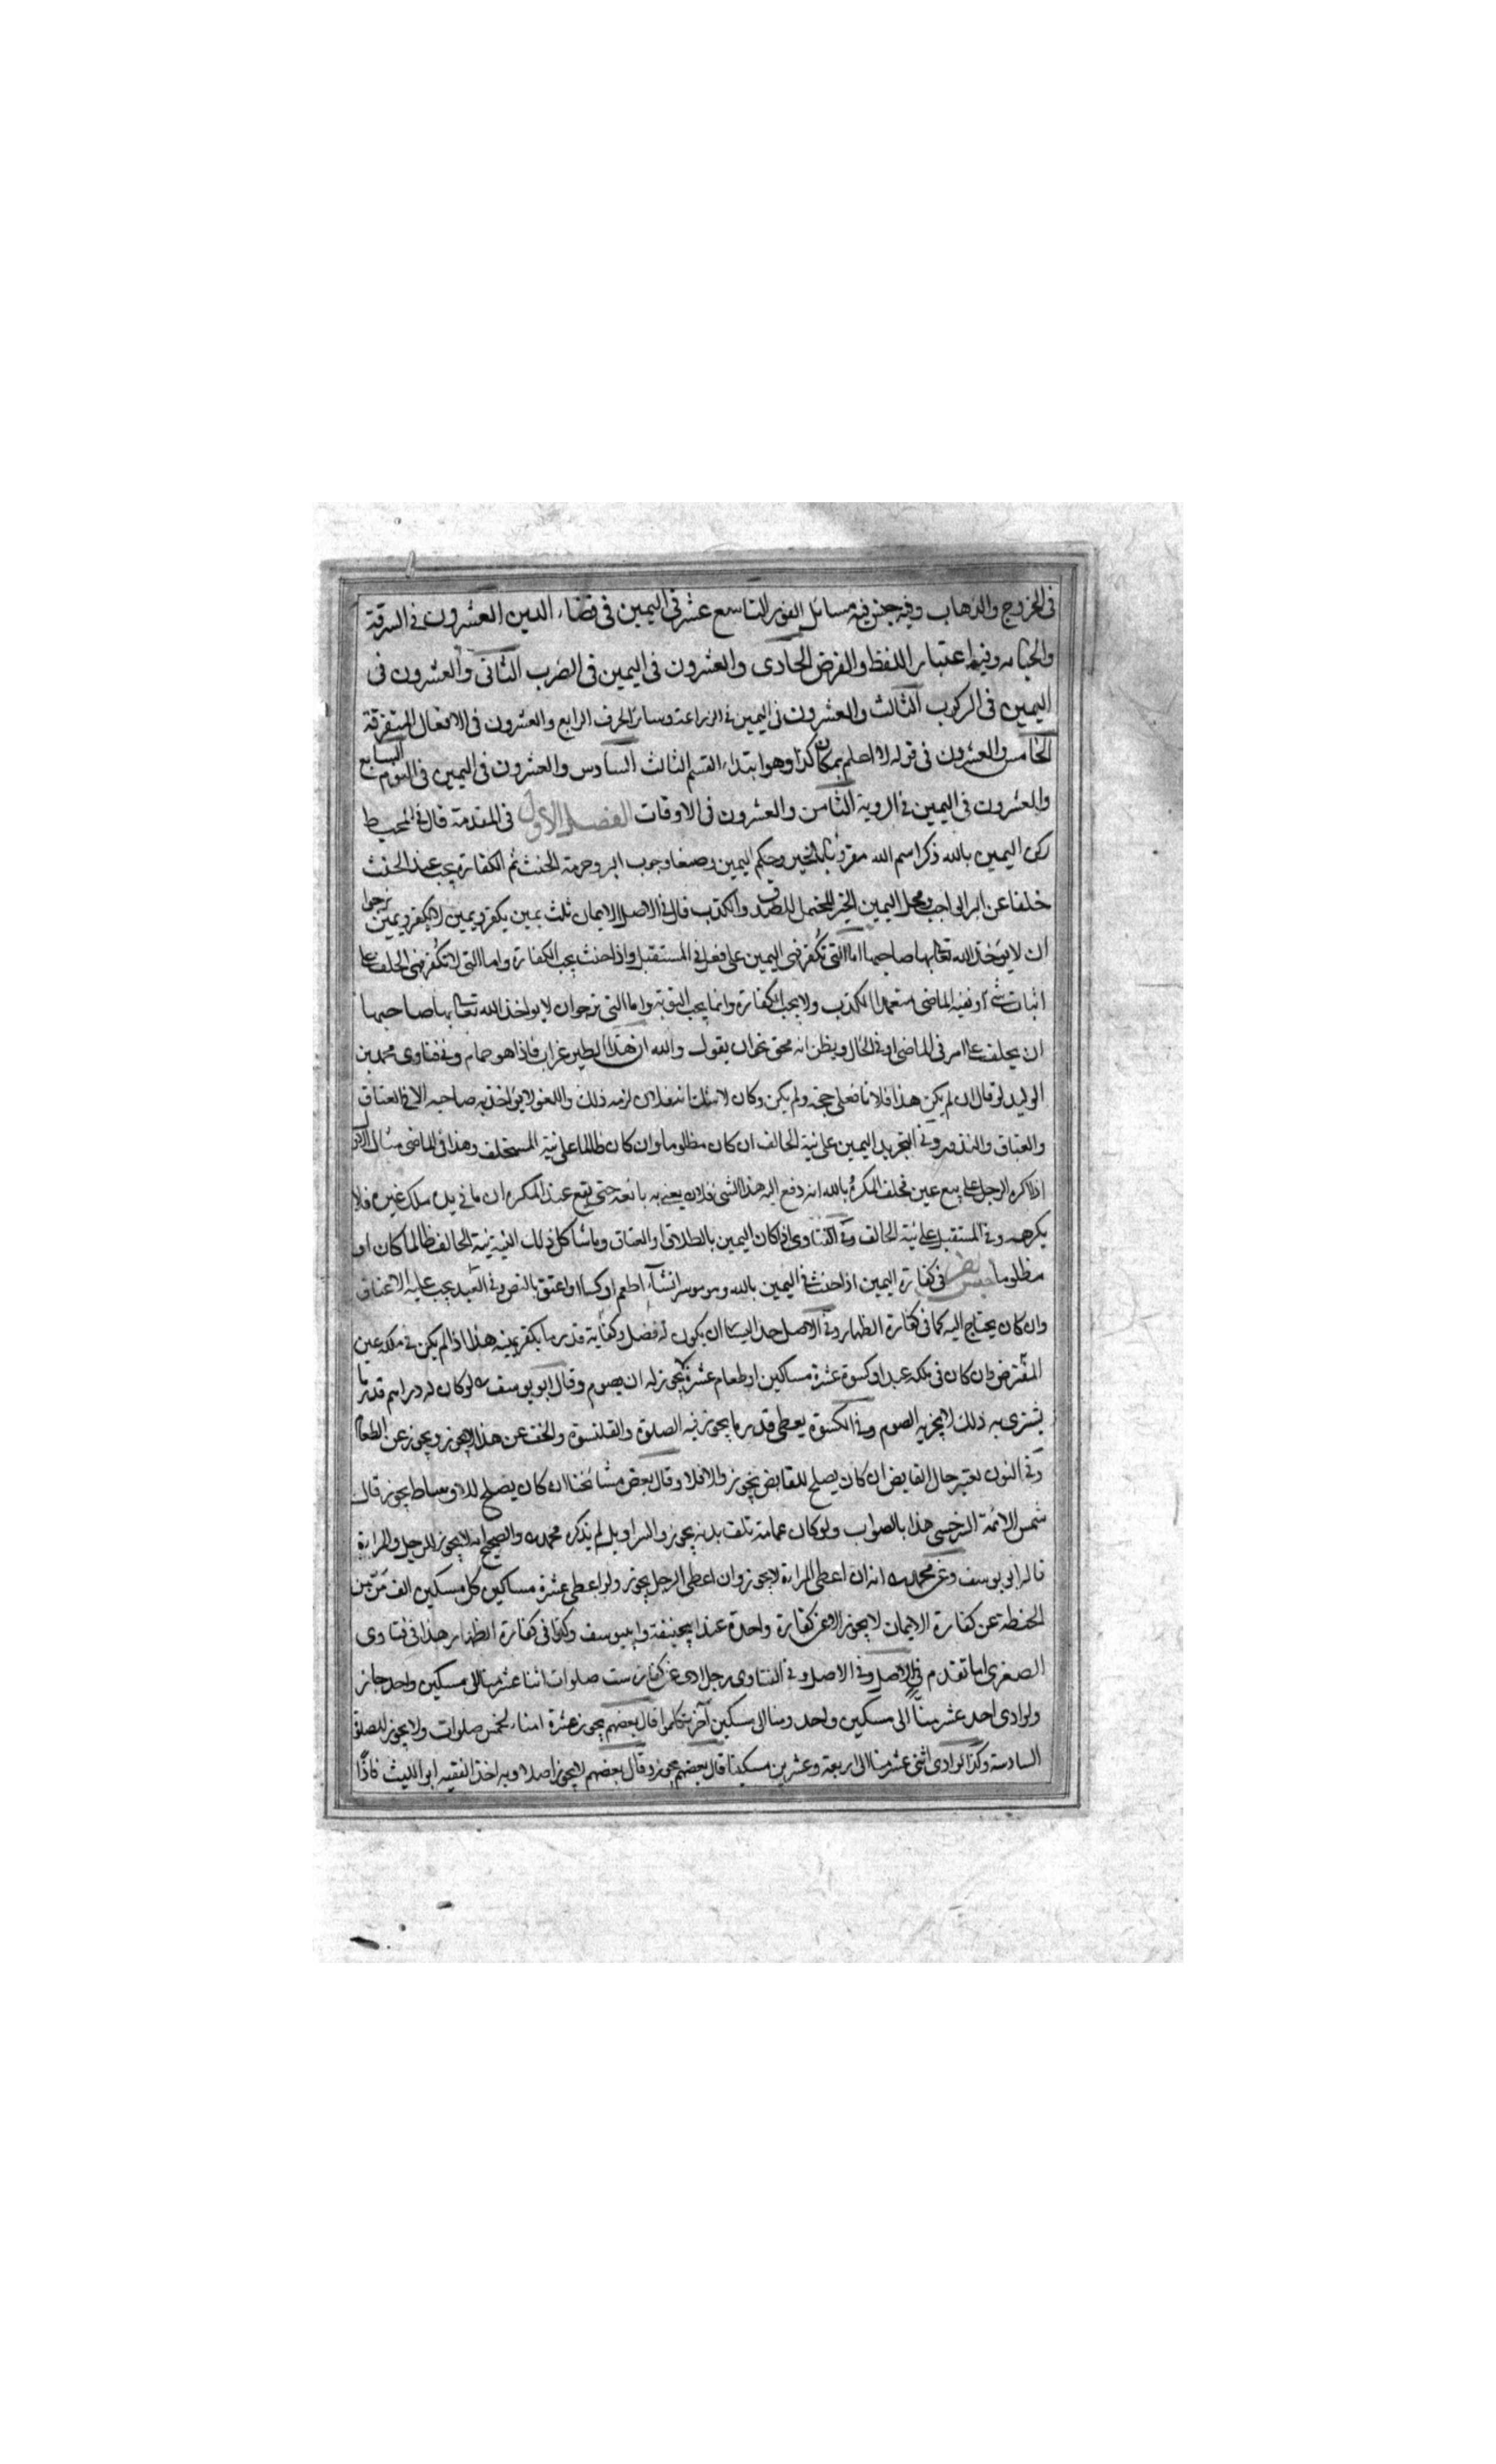 فى الخروج والذهاب وفيه جنس فيه مسائل الفور التاسع عشر فى اليمين فى قضاء الدين العشرون فى السرقة
والخيانه وفيها اعتبار اللفظ والغرض الحادى والعشرون فى اليمين فى الضرب الثانى والعشرون فى
اليمين فى الركوب الثالث والعشرون فى اليمين فى الزراعة وسائر الحرف الرابع والعشرون فى الافعال المتفرقة
الخامس والعشرون فى قوله لا اصلم بمكان كذا وهو ابتداء القسم الثالث السادس والعشرون فى اليمين فى النوم السابع
والعشرون فى اليمين فى الروية الثامن والعشرون فى الاوقات الفصل الاول فى المقدمة قال فى المحيط
ركن اليمين بالله ذكر اسم الله مقرونا بالخبر وحكم اليمين وصفا وجوب البر وحرمة الحنث ثم الكفارة يجب عند الحنث
خلفا عن البر الواجب ومحل اليمين الخبر المحتمل للصدق والكذب قال فى الاصل الايمان ثلث يمين يكفر ويمين لا يكفر ويمين نرجوا
ان لا يؤخذ الله تعالى بها صاحبها اما التى تكفر فهى اليمين على فعل فى المستقبل واذا حنث يجب الكفارة واما التى لا تكفر فهى الحلف على
اثبات شئ او نفيه الماضى متعمدا الكذب ولا يجب الكفارة وانما يجب التوبة واما التى نرجو ان لا يواخذ الله تعالى بها صاحبها
ان يحلف على امر فى الماضى او فى الحال ويظن انه محق نحو ان يقول والله ان هذا الطير غراب فاذا هو حمام وفى فتاوى محمد بن
الوليد لو قال ان لم يكن هذا فلانا فعلى حجة ولم يكن وكان لا شك انه فلان لزمه ذلك واللغو لا يؤاخذ به صاحبه الا فى العتاق
والعتاق والنذور وفى التجريد اليمين على نية الحالف ان كان مظلوما وان كان ظالما على نية المستحلف وهذا فى الماضى مثال الاول
اذا اكره الرجل على بيع عين فحلف المكره بالله انه دفع اليه هذا الشى فلان يعنى به بائعه حتى يقع عند المكره ان ما فى يده ملك غيره فلا
يكرهه وفى المستقبل على نية الحالف وفى الفتاوى اذا كان اليمين بالطلاق او العتاق وما شاكل ذلك النية نية الحالف ظالما كان او
مظلوما جنس فى كفارة اليمين اذا حنث فى اليمين بالله وهو موسر انشآء اطعم او كسا او اعتق بالنص وفى العبد يجب عليه الاعتاق
وان كان يحتاج اليه كما فى كفارة الظهار وفى الاصل حد اليسار ان يكون له فضل وكفاية قدر ما يكفر يمينه هذا اذا لم يكن فى ملكه عين
المفترض وان كان فى ملكه عبد او كسوة عشرة مساكين او طعام عشرة لا يجوز له ان يصوم وقال ابو يوسف لو كان له دراهم قدر ما
يشترى به ذلك لا يجزيه الصوم وفى الكسوة يعطى قدر ما يجوز فيه الصلوة والقلنسوة والخف عن هذا لا يجوز ويجوز عن الطعام
وفى الثوب يعتبر حال القابض ان كان يصلح للقابض يجوز والا فلا وقال بعض مشائخنا ان كان يصلح للاوساط يجوز قال
شمس الائمة السرخسى هذا بالصواب ولو كان عمامة تلف بدنه يجوز والسراويل لم يذكره محمد والصحيح انه لا يجوز للرجل والمراة
قاله ابى يوسف وعن محمد انه ان اعطى المراة لا يجوز وان اعطى الرجل يجوز ولو اعطى عشرة مساكين كل مسكين الف من من
الحنطة عن كفارة الايمان لا يجوز الا عن كفارة واحدة عند ابيحنيفة وابيوسف وكذا فى كفارة الظهار هذا فى فتاوى
الصغرى اما تقدم فى الاصل وفى الاصل وفى الفتاوى رجل ادى عن كفارت ست صلوات اثنا عشر منا الى مسكين واحد جاز
ولو ادى احد عشر منًّا الى مسكين واحد ومنا الى مسكين آخر تكلموا قال بعضهم يجوز عشرة امناء لخمس صلوات ولا يجوز للصلوة
السادسة وكذا لو ادى اثنى عشر منا الى اربعة وعشرين مسكينا قال بعضهم يجوز وقال بعضهم لا يجوز اصلا وبه اخذ الفقيه ابو الليث فاذًا